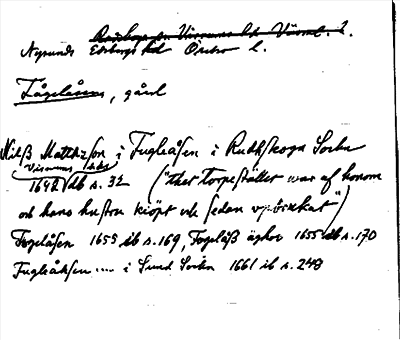 Nysunds Edsbergs hd Örebro l.
Fågelåsen, gård
Nilß Mattizson i Fugleåsen i Rudhskoga Sockn
Visnums hds
1642 db s. 32 ("thet torpestället war af honom
och hans hustru kiöpt och sedan upbrukat")
Fogelåsen 1655 ib s. 169, Fogelåß ägher 1655 ib s. 170
Fugleåhsen .... i Sund Sockn 1661 ib s. 248